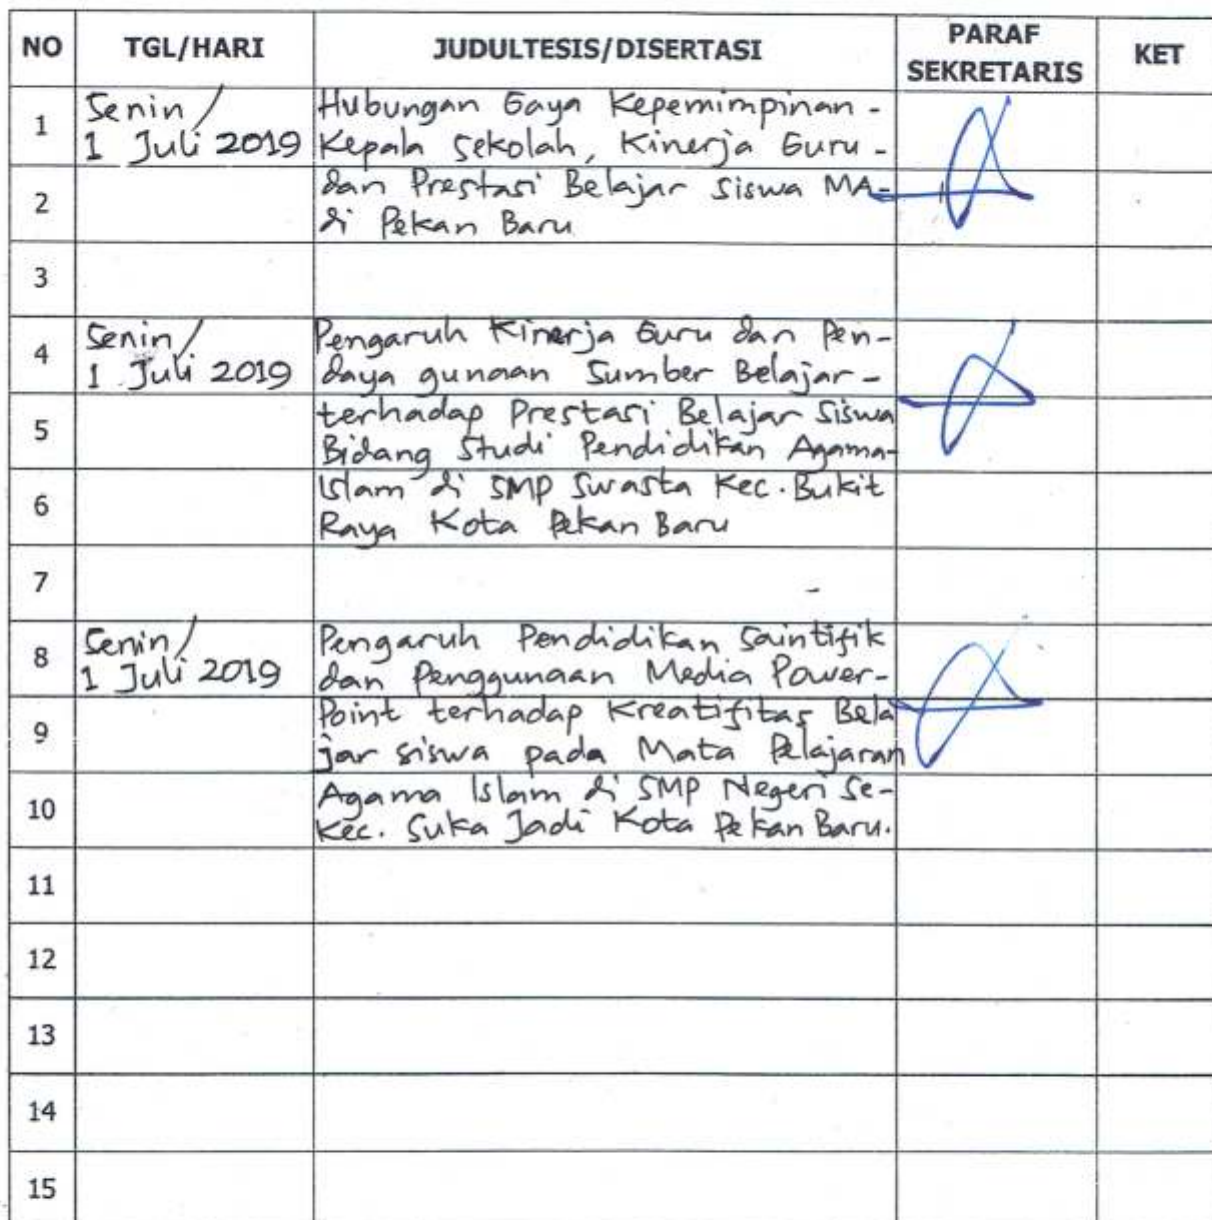 NO TGL/HARI JUDULTESIS/DISERTASI PARAF SEKRETARIS KET
1 Senin / 1 Juli 2019 Hubungan Gaya Kepemimpinan -
Kepala Sekolah, Kinerja Guru -
2 dan Prestasi Belajar Siswa MA -
di Pekan Baru
3
4 Senin / 1 Juli 2019 Pengaruh Kinerja Guru dan Pen-
daya gunaan Sumber Belajar -
5 terhadap Prestasi Belajar Siswa
Bidang Studi Pendidikan Agama -
6 Islam di SMP Swasta Kec. Bukit
Raya Kota Pekan Baru
7
8 Senin / 1 Juli 2019 Pengaruh Pendidikan Saintifik
dan Penggunaan Media Power-
9 Point terhadap Kreatifitas Bela
jar siswa pada Mata Pelajaran
10 Agama Islam di SMP Negeri Se-
Kec. Suka Jadi Kota Pekan Baru.
11
12
13
14
15